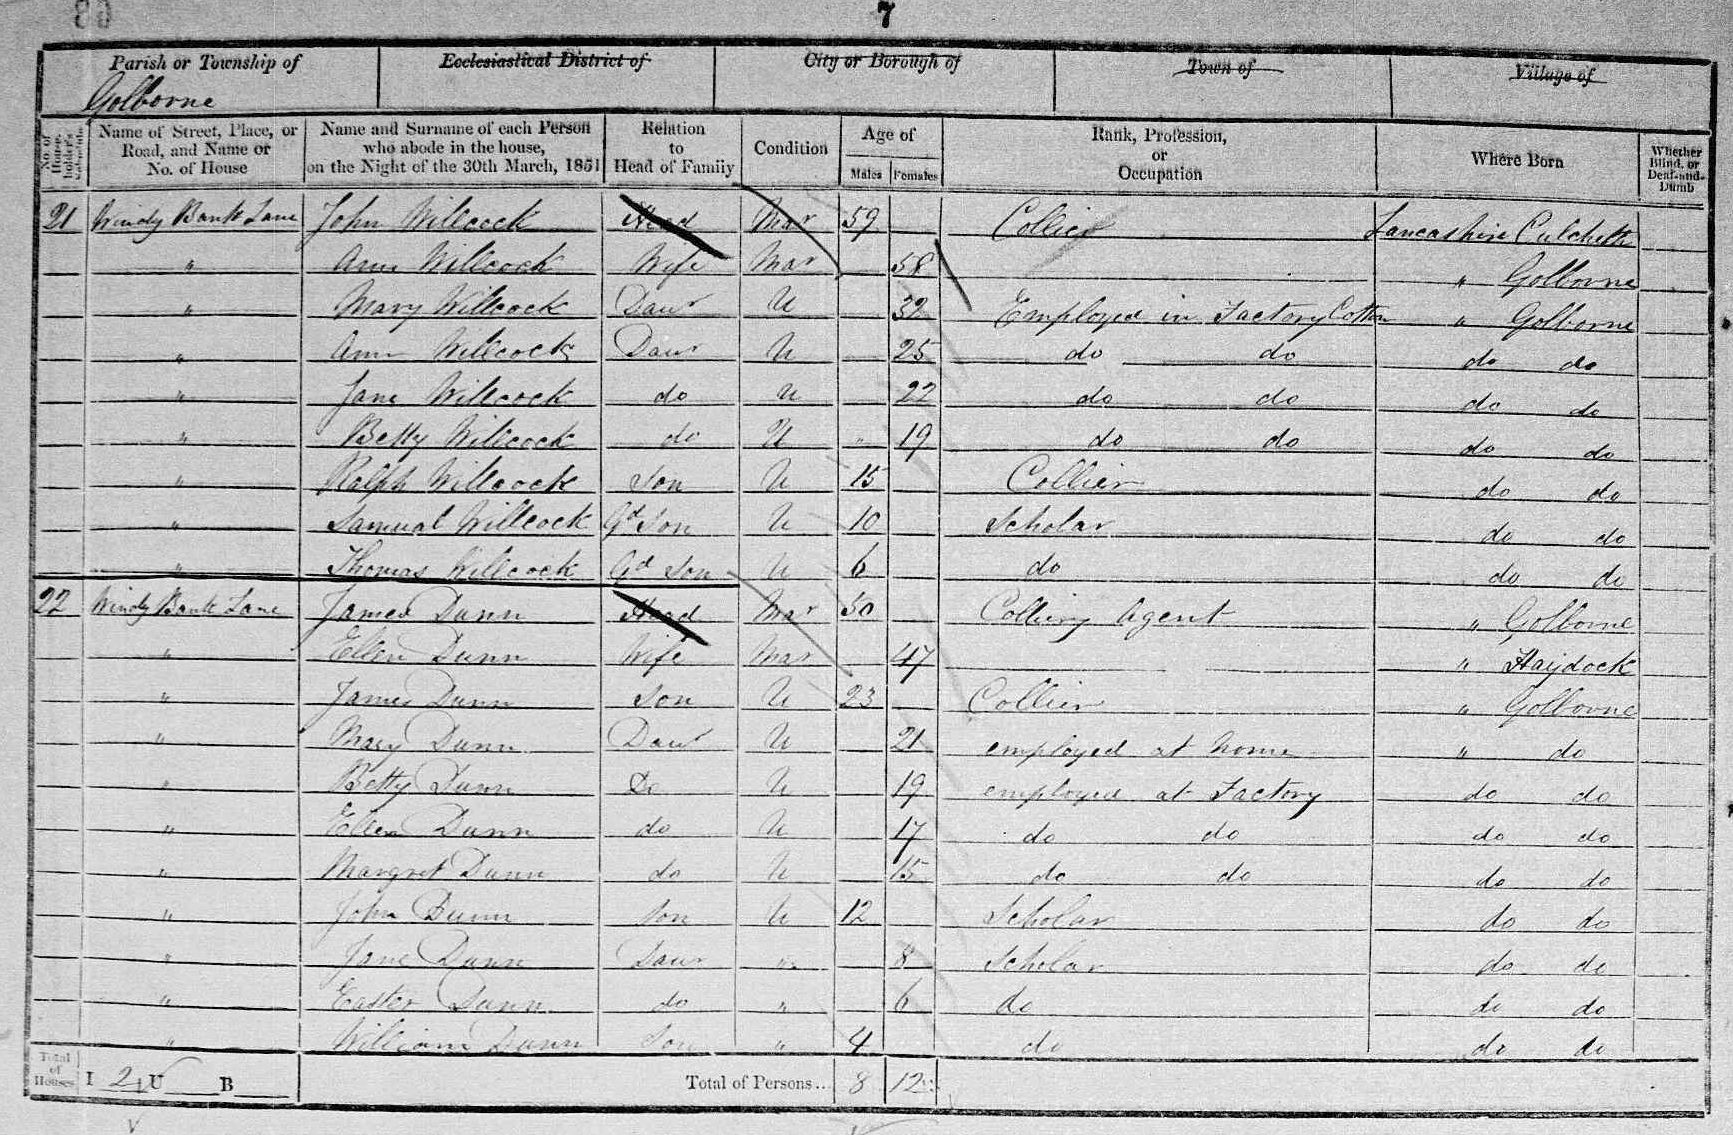 7
Parish or Township of Ecclesiastical District of City or Borough of Town of Village of
Golborne
No. of House-holder's Schedule Name of Street, Place, or Road, and Name or No. of House Name and Surname of each Person who abode in the house, on the Night of the 30th March, 1851 Relation to Head of Family Condition Age of Males Females Rank, Profession, or Occupation Where Born Whether Blind, or Deaf-and-Dumb
21 Windy Bank Lane John Willcock Head Mar 59 Collier Lancashire Culcheth
" Ann Willcock Wife Mar 58 " Golborne
" Mary Willcock Daur U 32 Employed in Factory Cotton " Golborne
" Ann Willcock Daur U 25 do do do do
" Jane Willcock do U 22 do do do do
" Betty Willcock do U " 19 do do do do
" Ralph Willcock Son U 15 Collier do do
" Samual Willcock Gd Son U 10 Scholar do do
" Thomas Willcock Gd Son U 6 do do do
22 Windy Bank Lane James Dunn Head Mar 50 Colliery Agent " Golborne
" Ellen Dunn Wife Mar 47 " Haydock
" James Dunn Son U 23 Collier " Golborne
" Mary Dunn Daur U 21 employed at home " do
" Betty Dunn Do U 19 employed at Factory do do
" Ellen Dunn do U 17 do do do do
" Margret Dunn do U 15 do do do do
" John Dunn Son U 12 Scholar do do
" Jane Dunn Daur " 8 Scholar do do
" Easter Dunn do " 6 do do do
" William Dunn Son " 4 do do do
Total of Houses I 2 U B Total of Persons... 8 12